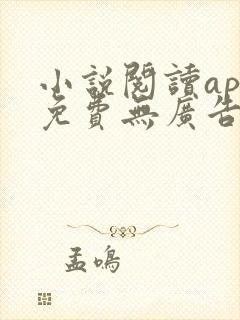 小說閱讀ap
免費無廣告
孟鳴